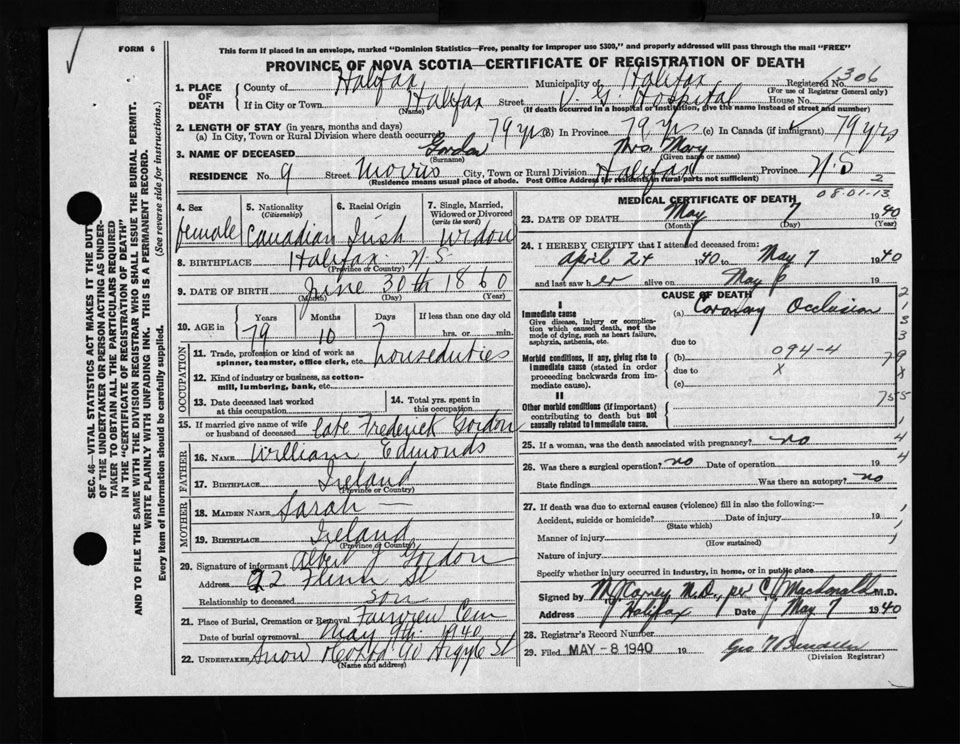 FORM 6
This form if placed in an envelope, marked "Dominion Statistics—Free, penalty for improper use $300," and properly addressed will pass through the mail "FREE"
PROVINCE OF NOVA SCOTIA—CERTIFICATE OF REGISTRATION OF DEATH
1. PLACE OF DEATH
County of Halifax Municipality of Halifax Registered No. 1306
(For use of Registrar General only)
If in City or Town Halifax Street V. G. Hospital House No.
(Name) (If death occurred in a hospital or institution, give the name instead of street and number)
2. LENGTH OF STAY (in years, months and days)
(a) In City, Town or Rural Division where death occurred 79 yrs (b) In Province 79 yrs (c) In Canada (if immigrant) 79 yrs
3. NAME OF DECEASED Gordon Mrs. Mary
(Surname) (Given name or names)
RESIDENCE No. 9 Street Morris City, Town or Rural Division Halifax Province N.S
(Residence means usual place of abode. Post Office Address for residents in rural parts not sufficient)
2
08-01-13
SEC. 46—VITAL STATISTICS ACT MAKES IT THE DUTY
OF THE UNDERTAKER OR PERSON ACTING AS UNDER-
TAKER TO OBTAIN ALL THE PARTICULARS REQUIRED
IN THE "CERTIFICATE OF REGISTRATION OF DEATH"
AND TO FILE THE SAME WITH THE DIVISION REGISTRAR WHO SHALL ISSUE THE BURIAL PERMIT.
WRITE PLAINLY WITH UNFADING INK. THIS IS A PERMANENT RECORD.
Every item of information should be carefully supplied. (See reverse side for instructions.)
4. Sex female
5. Nationality (Citizenship) Canadian
6. Racial Origin Irish
7. Single, Married, Widowed or Divorced (write the word) Widow
8. BIRTHPLACE Halifax N.S
(Province or Country)
9. DATE OF BIRTH June 30th 1860
(Month) (Day) (Year)
10. AGE in Years 79 Months 10 Days 7 If less than one day old hrs. or min.
OCCUPATION
11. Trade, profession or kind of work as spinner, teamster, office clerk, etc. houseduties
12. Kind of industry or business, as cotton-mill, lumbering, bank, etc.
13. Date deceased last worked at this occupation
14. Total yrs. spent in this occupation
15. If married give name of wife or husband of deceased late Frederick Gordon
FATHER
16. NAME William Edmonds
17. BIRTHPLACE Ireland
(Province or Country)
MOTHER
18. MAIDEN NAME Sarah —
19. BIRTHPLACE Ireland
(Province or Country)
20. Signature of informant Albert J Gordon
Address 92 Flinn St
Relationship to deceased son
21. Place of Burial, Cremation or Removal Fairview Cem
Date of burial or removal May 9th 1940
22. UNDERTAKER Snow 90 Argyle St
(Name and address)
MEDICAL CERTIFICATE OF DEATH
23. DATE OF DEATH May 7 1940
(Month) (Day) (Year)
24. I HEREBY CERTIFY that I attended deceased from:
April 24 1940 to May 7 1940
and last saw her alive on May 6
CAUSE OF DEATH
I
Immediate cause
Give disease, injury or complication which caused death, not the mode of dying, such as heart failure, asphyxia, asthenia, etc.
(a) Coronary Occlusion
due to
Morbid conditions, if any, giving rise to immediate cause (stated in order proceeding backwards from immediate cause).
(b) 094-4
due to X
(c)
II
Other morbid conditions (if important) contributing to death but not causally related to immediate cause.
25. If a woman, was the death associated with pregnancy? no
26. Was there a surgical operation? no Date of operation 19
State findings Was there an autopsy? no
27. If death was due to external causes (violence) fill in also the following:
Accident, suicide or homicide? Date of injury 19
(State which)
Manner of injury
(How sustained)
Nature of injury
Specify whether injury occurred in industry, in home, or in public place
Signed by M. J. Carney M.D., per C J Macdonald M.D.
Address Halifax Date May 7 1940
28. Registrar's Record Number
29. Filed MAY - 8 1940 19
(Division Registrar)